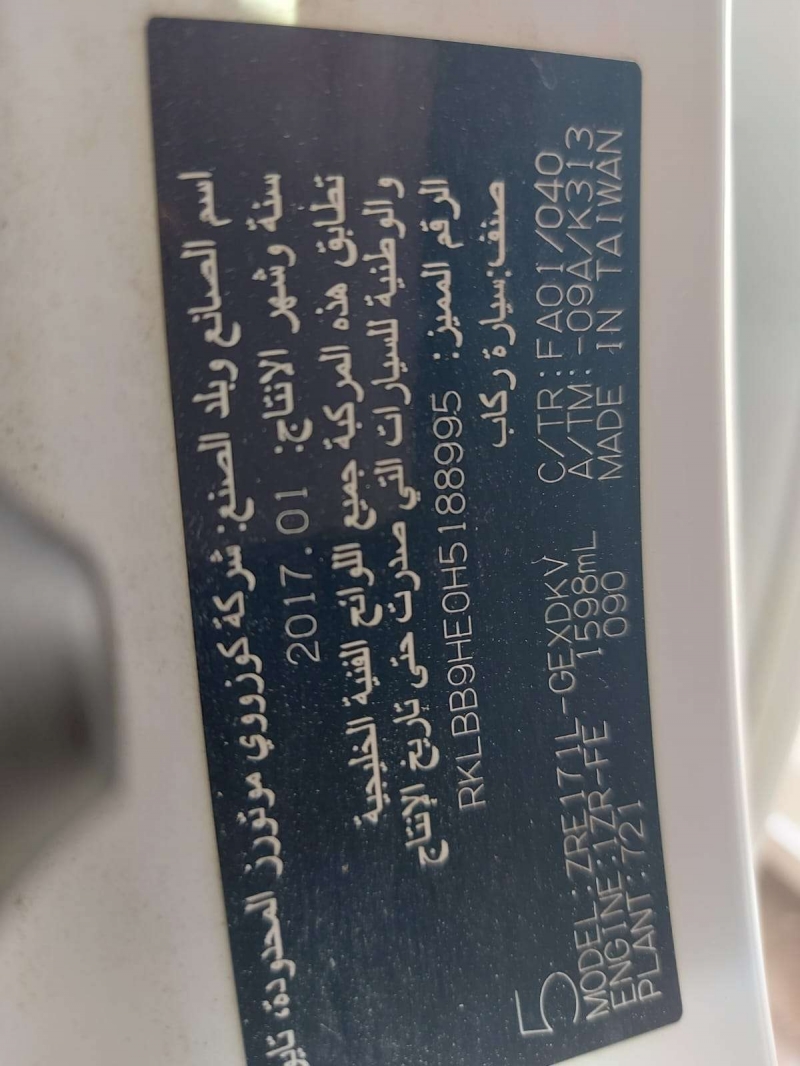 اسم الصانع وبلد الصنع: شركة كوزووي موتورز المحدودة،
سنة وشهر الانتاج: 2017.01
تطابق هذه المركبة جميع اللوائح الفنية الخليجية
والوطنية للسيارات التي صدرت حتى تاريخ الإنتاج
الرقم المميز: RKLBB9HE0H5188995
صنف: سيارة ركاب
5
MODEL:ZRE171L-GEXDKV C/TR:FA01/040
ENGINE:1ZR-FE 1598mL A/TM:-09A/K313
PLANT:T21 090 MADE IN TAIWAN